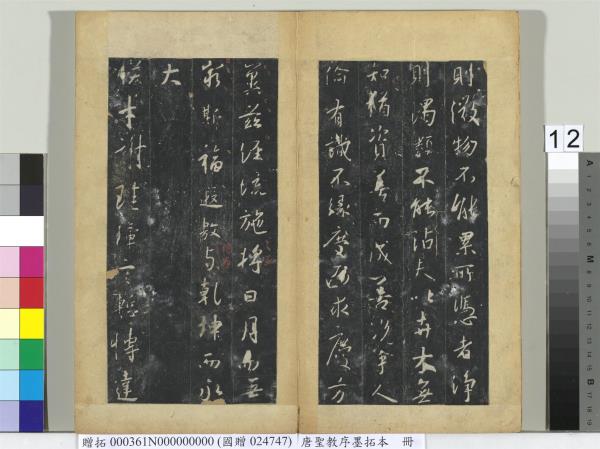 則微物不能累所憑者淨
則濁類不能沾夫以卉木無
知猶資善而成善況乎人
倫有識不緣慶而求慶方
冀茲經流施將日月而無
窮斯福遐敷與乾坤而永
大
朕才謝珪璋言慙博達
12
A 1 2 3 4 5 6 M 8 9 10 11 12 13 14 15 B 17 18 19
贈拓 000361N000000000 (國贈 024747) 唐聖教序墨拓本 冊